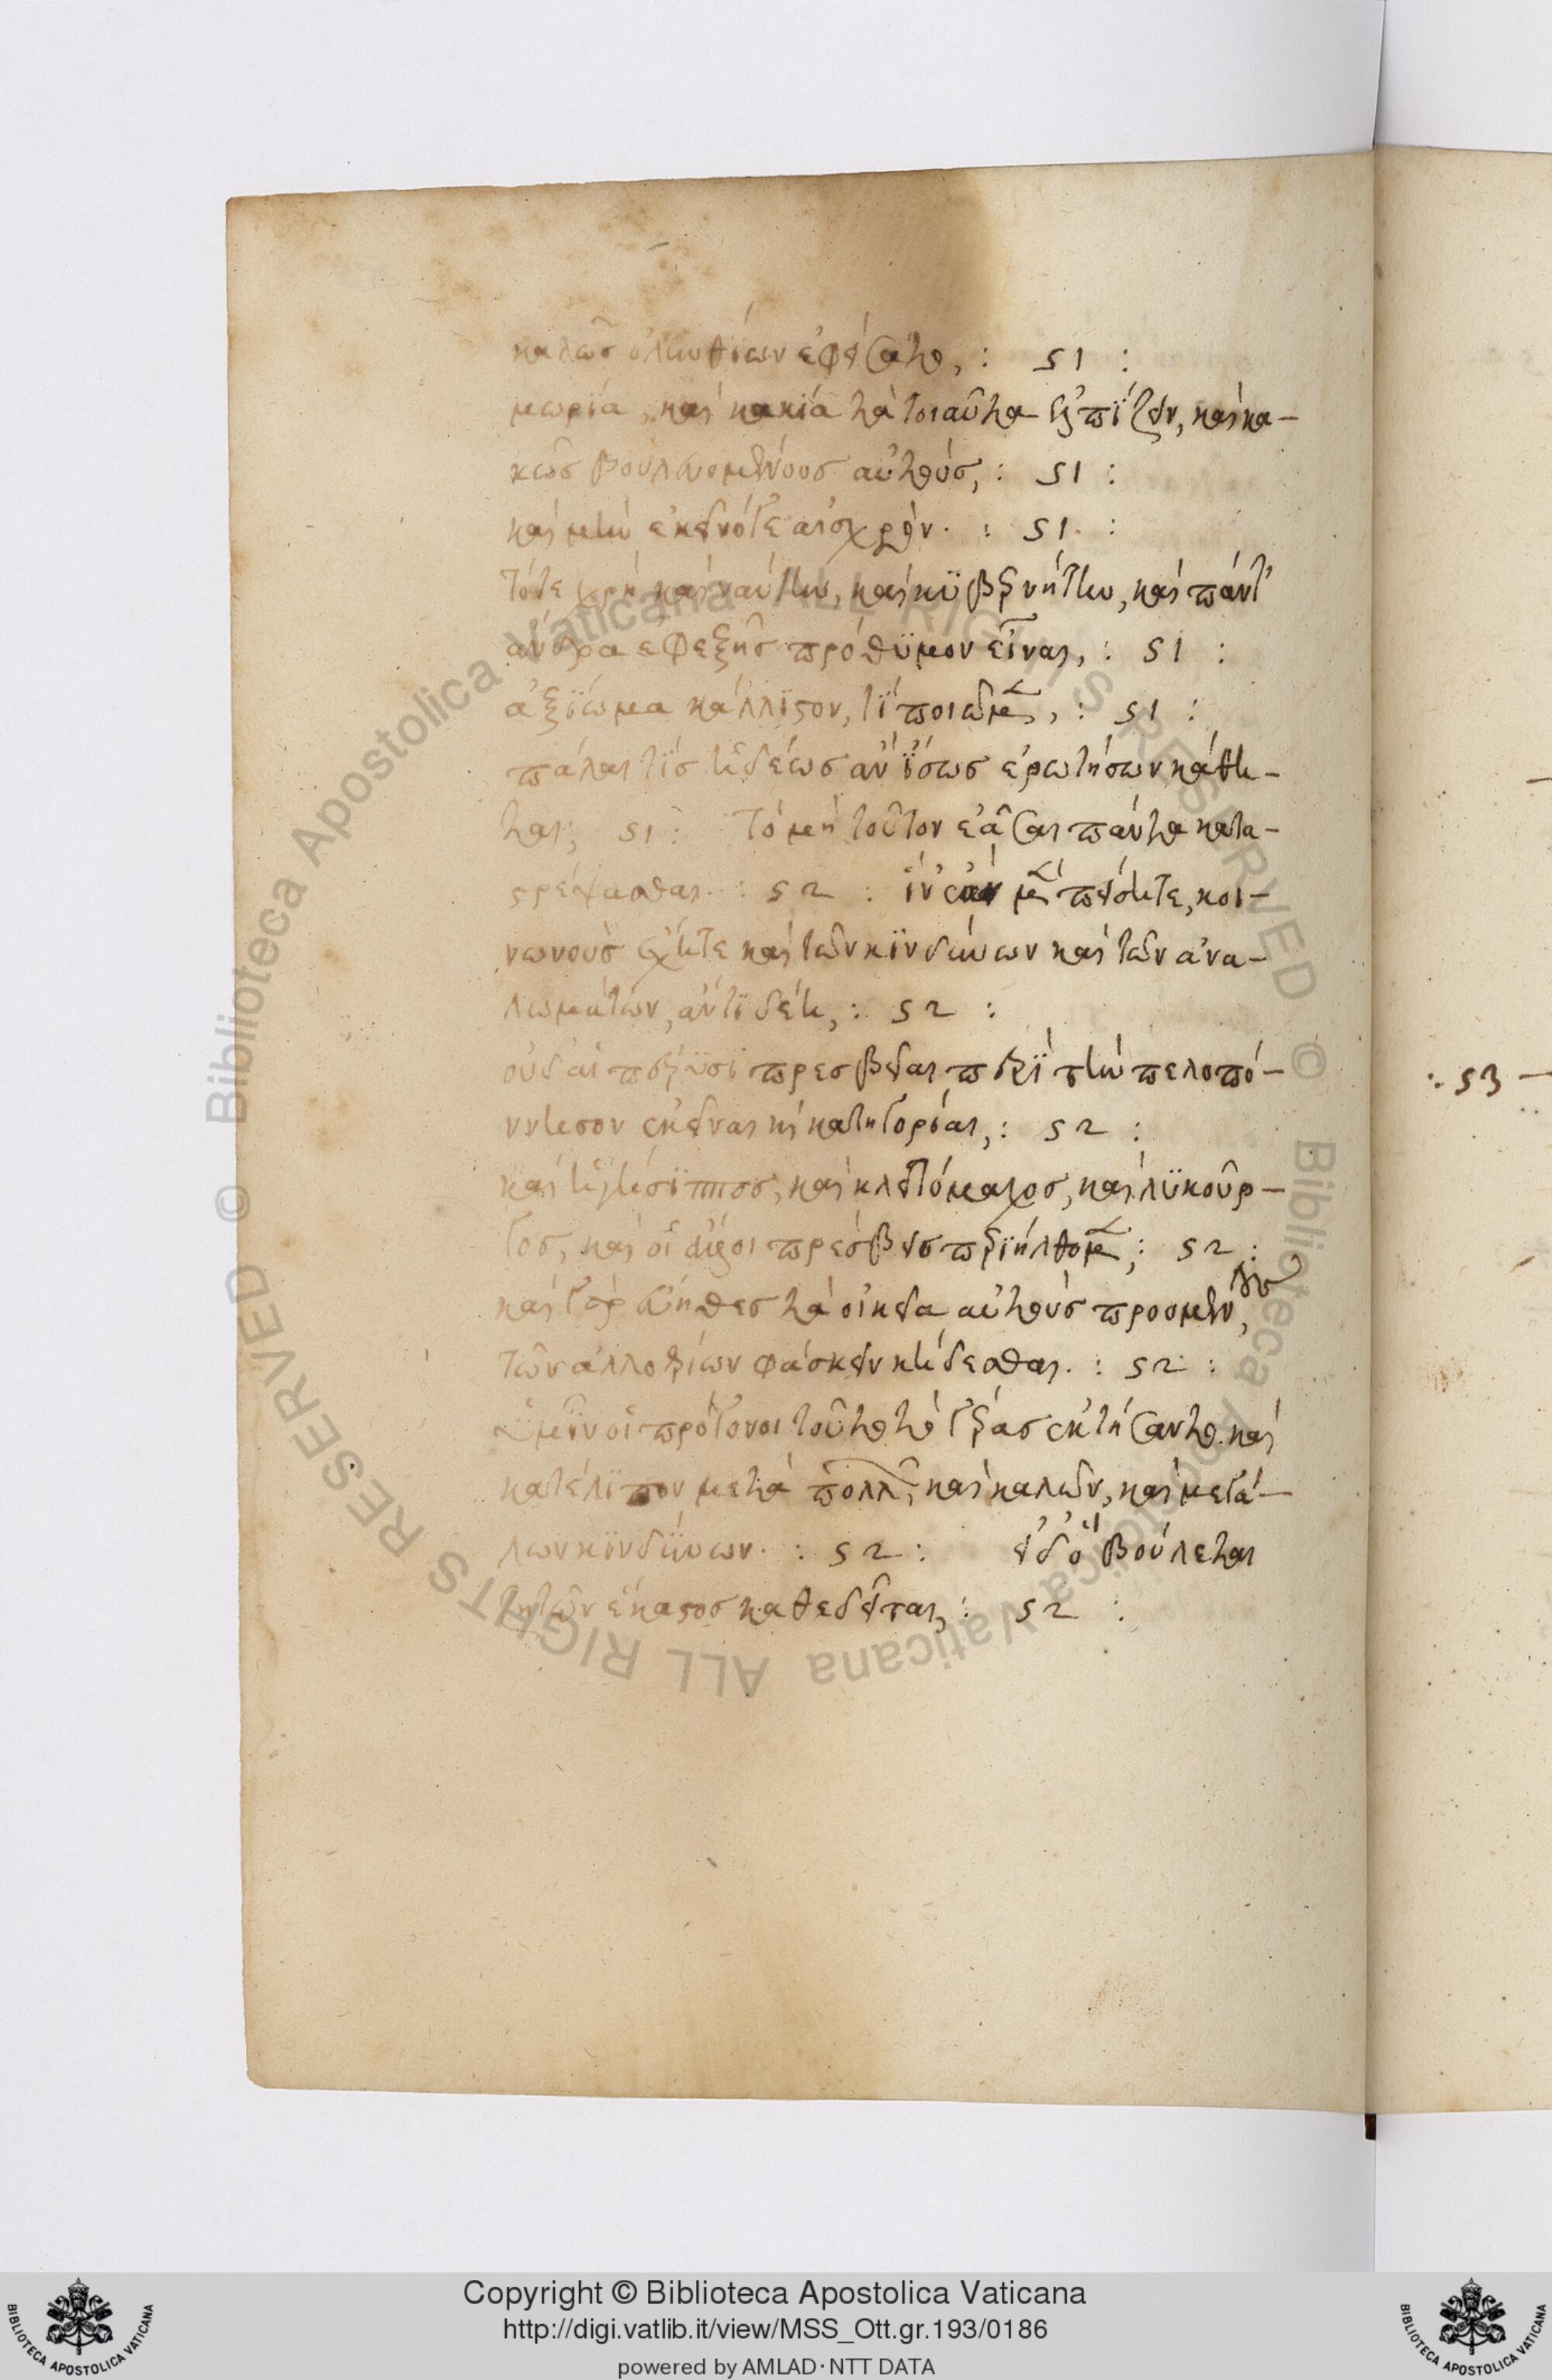 καλῶσ ὀλυνθίων ἐφείσατο, : 51 :
μωρία, καὶ κακία τὰ τοιαῦτα ἐλπίζειν, καὶ κα-
κῶσ βουλευομένουσ αὐτοὺσ, : 51 :
καὶ μὴν ἐκεῖνό γε αἰσχρόν. : 51 :
τότε χρὴ καὶ ναύτην, καὶ κϋβερνήτην, καὶ πάντ'
ἄνδρα ἐφεξῆσ πρόθϋμον εἶναι, : 51 :
ἀξϊωμα κάλλϊστον, τί ποιῶμεν, : 51 :
πάλαι τϊσ ἡδέωσ ἂν ἴσωσ ἐρωτήσων κάθη-
ται; 51 : τὸ μὴ τοῦτον ἐᾶσαι πάντα κατα-
στρέψασθαι. : 52 : ἵν' ἐὰν μὲν πείσητε, κοι-
νωνοὺσ ἔχητε καὶ τῶν κϊνδύνων καὶ τῶν ἀνα-
λωμάτων, ἄν τϊ δέῃ, : 52 :
οὐδ' αἱ πέρυσϊ πρεσβεῖαι περὶ τὴν πελοπό-
ννησον ἐκεῖναι καὶ κατηγορίαι, : 52 :
καὶ ἡγήσϊππος, καὶ κλειτόμαχοσ, καὶ λϋκοῦρ-
γοσ, καὶ οἱ ἄλλοι πρέσβεισ περιήλθομεν, : 52 :
καὶ γὰρ εὔηθεσ τὰ οἰκεῖα αὐτοὺσ προσμέν,
τῶν ἀλλοτρίων φάσκειν κήδεσθαι. : 52 :
ὑμῖν οἱ πρόγονοι τοῦτο τὸ γέρας ἐκτήσαντο καὶ
κατέλϊπον μετὰ πολλῶν, καὶ καλῶν, καὶ μεγά-
λων κϊνδύνων. : 52 : εἰ δ' ὃ βούλεται
ζητῶν ἕκαστοσ καθεδεῖται, : 52 :
: 53
Copyright © Biblioteca Apostolica Vaticana
http://digi.vatlib.it/view/MSS_Ott.gr.193/0186
powered by AMLAD·NTT DATA
BIBLIOTECA APOSTOLICA VATICANA
BIBLIOTECA APOSTOLICA VATICANA
© Biblioteca Apostolica Vaticana ALL RIGHTS RESERVED
© Biblioteca Apostolica Vaticana ALL RIGHTS RESERVED